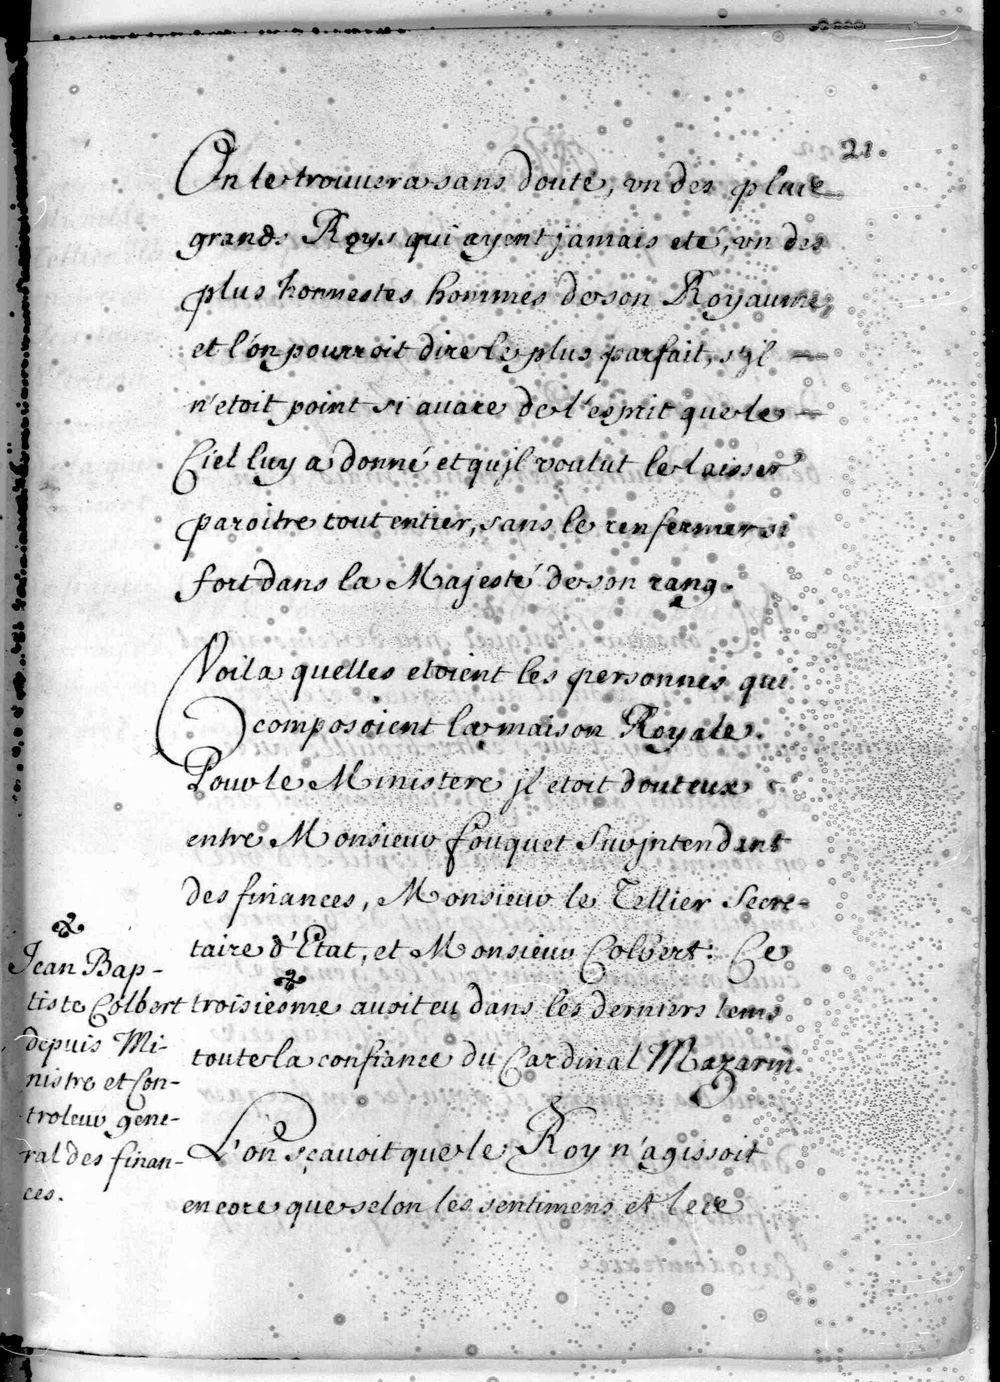 21.
On le trouvera sans doute, vn des plus
grands Roys qui ayent jamais eté, vn des
plus honnestes hommes de son Royaume,
et l'on pourroit dire le plus parfait, s'jl
n'etoit point si auare de l'esprit que le
Ciel luy a donné et qu'jl voulut le laisser
paroitre tout entier, sans le renfermer si
fort dans la Majesté de son rang.
Voila quelles etoient les personnes qui
composoient la maison Royale.
Pour le Ministere jl etoit douteux
entre Monsieur fouquet Surjntendant
des finances, Monsieur le Tellier Secre-
taire d'Etat, et Monsieur Colbert: Ce
troisiesme auoit eu dans les derniers tems
toute la confiance du Cardinal Mazarin.
L'on sçauoit que le Roy n'agissoit
encore que selon les sentimens et les
Jean Bap-
tiste Colbert
depuis Mi-
nistre et Con-
troleur gene-
ral des finan-
ces.